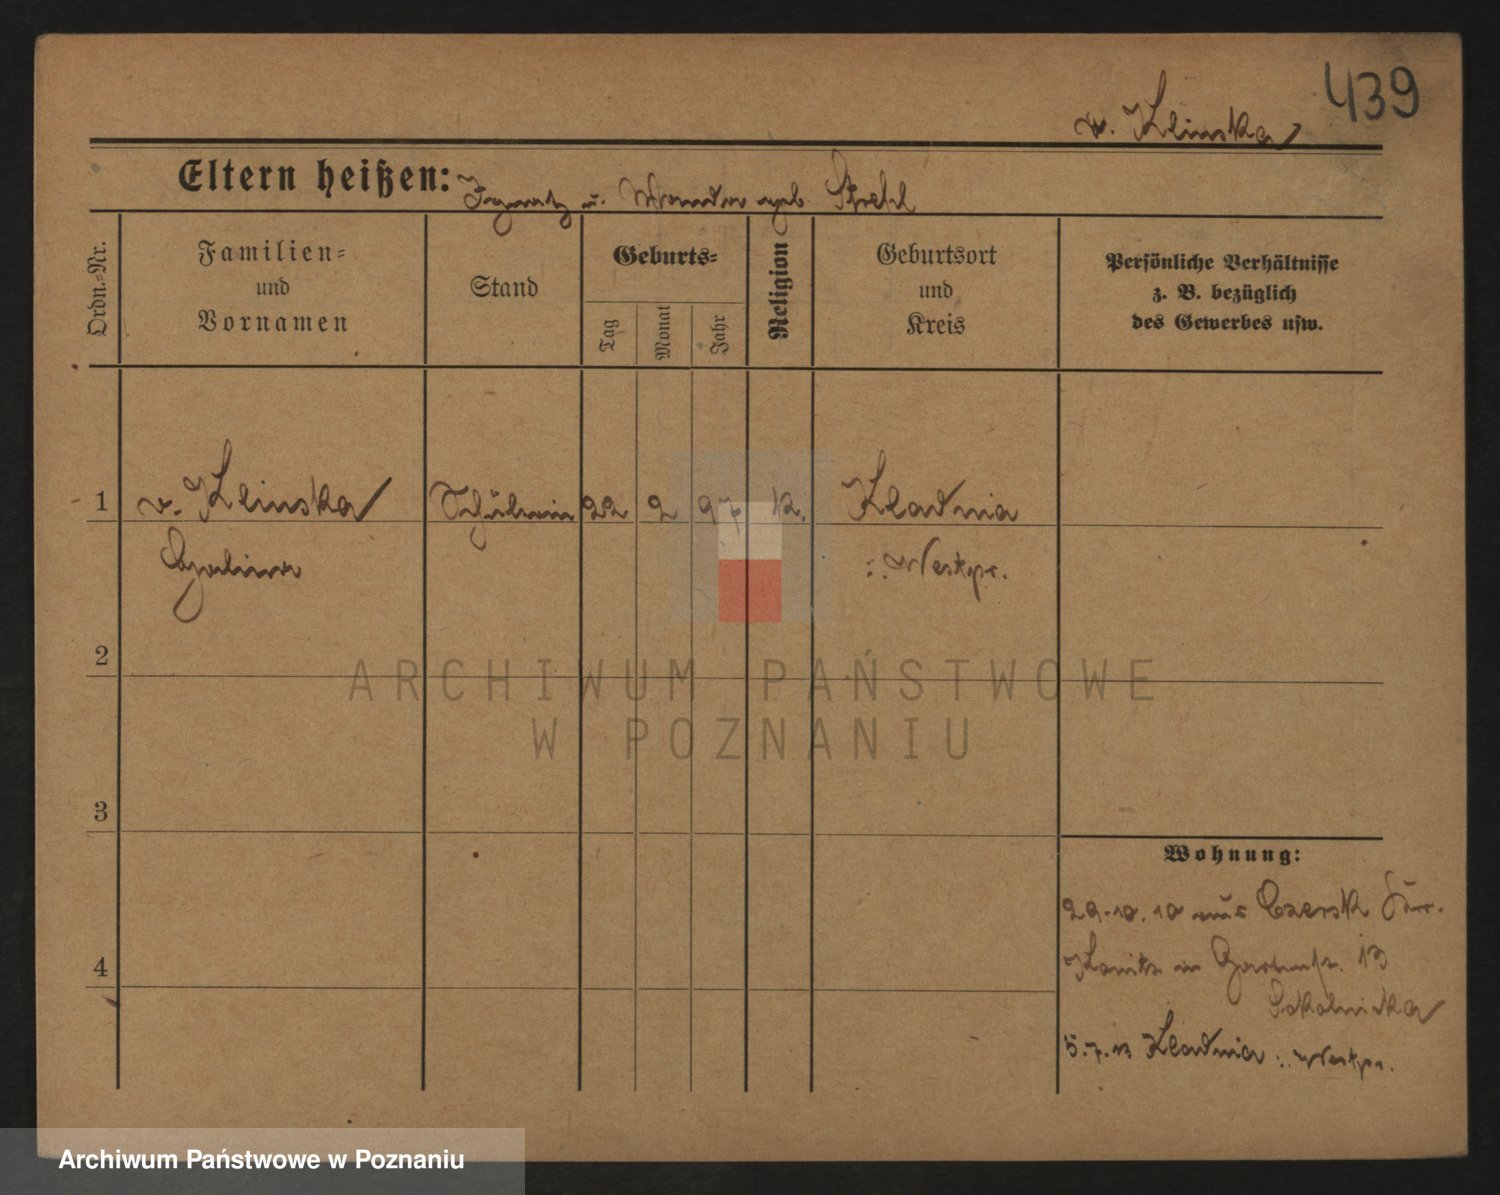 439
v. Klinska
Eltern heißen: Ignatz u. Wanda geb. Strehl
Ordn.-Nr.
Familien-
und
Vornamen
Stand
Geburts-
Tag
Monat
Jahr
Religion
Geburtsort
und
Kreis
Persönliche Verhältnisse
z. B. bezüglich
des Gewerbes usw.
1 v. Klinska Schülerin 22 2 97 k. Kladnia
Halina Westpr.
2
3
4
Wohnung:
29.10.10 aus Czersk
Konitz in Gartenstr. 13
Sokolnicka
5.7.13 Kladnia Westpr.
ARCHIWUM PAŃSTWOWE
W POZNANIU
Archiwum Państwowe w Poznaniu